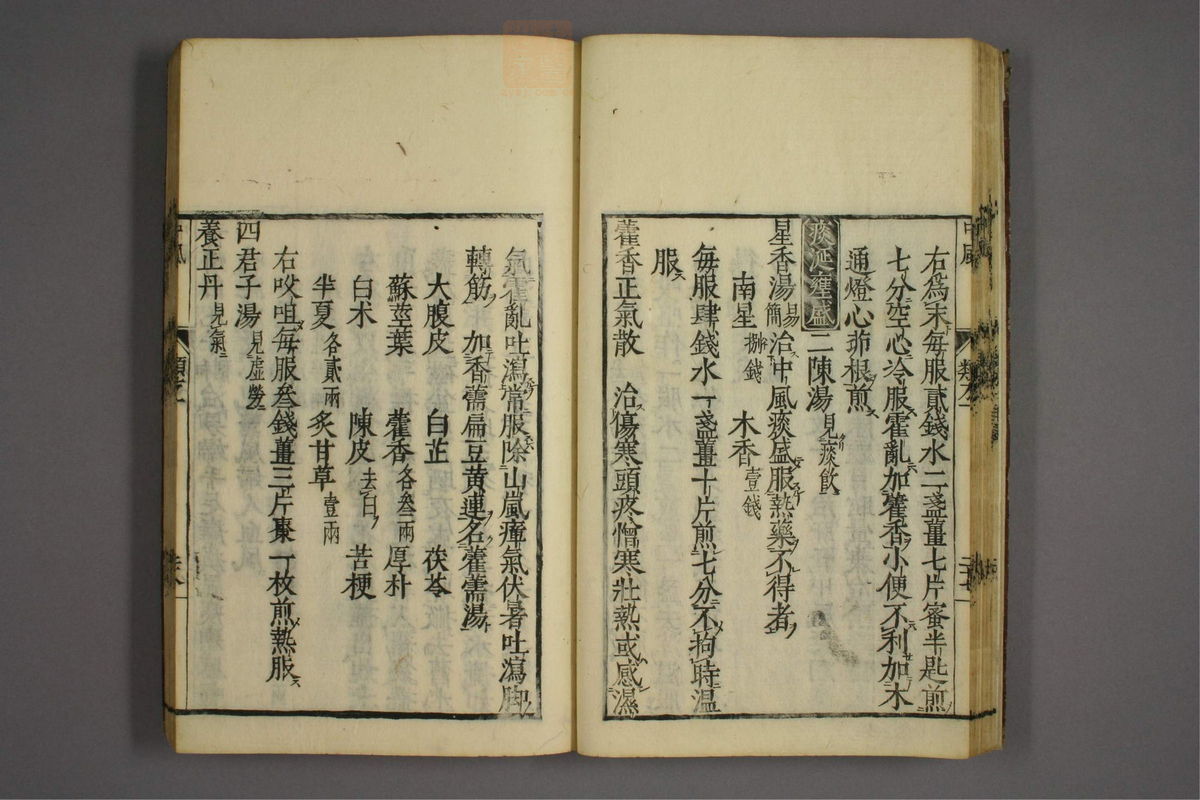 右為末每服貳錢水二盞薑七片蜜半匙煎
七分空心冷服霍亂加藿香小便不利加木
通燈心茆根煎
痰涎壅盛 二陳湯 見痰飲
星香湯 易簡 治中風痰盛服熱藥不得者
南星 捌錢 木香 壹錢
每服肆錢水一盞薑十片煎七分不拘時溫
服
藿香正氣散 治傷寒頭疼憎寒壯熱或感濕
氣霍亂吐瀉常服除山嵐瘴氣伏暑吐瀉脚
轉筋 加香薷扁豆黃連名藿薷湯
大腹皮 白芷 茯苓
蘇莖葉 藿香 各叁兩 厚朴
白朮 陳皮 去白 苦梗
半夏 各貳兩 炙甘草 壹兩
右㕮咀每服叁錢薑三片棗一枚煎熱服
四君子湯 見虛勞
養正丹 見氣